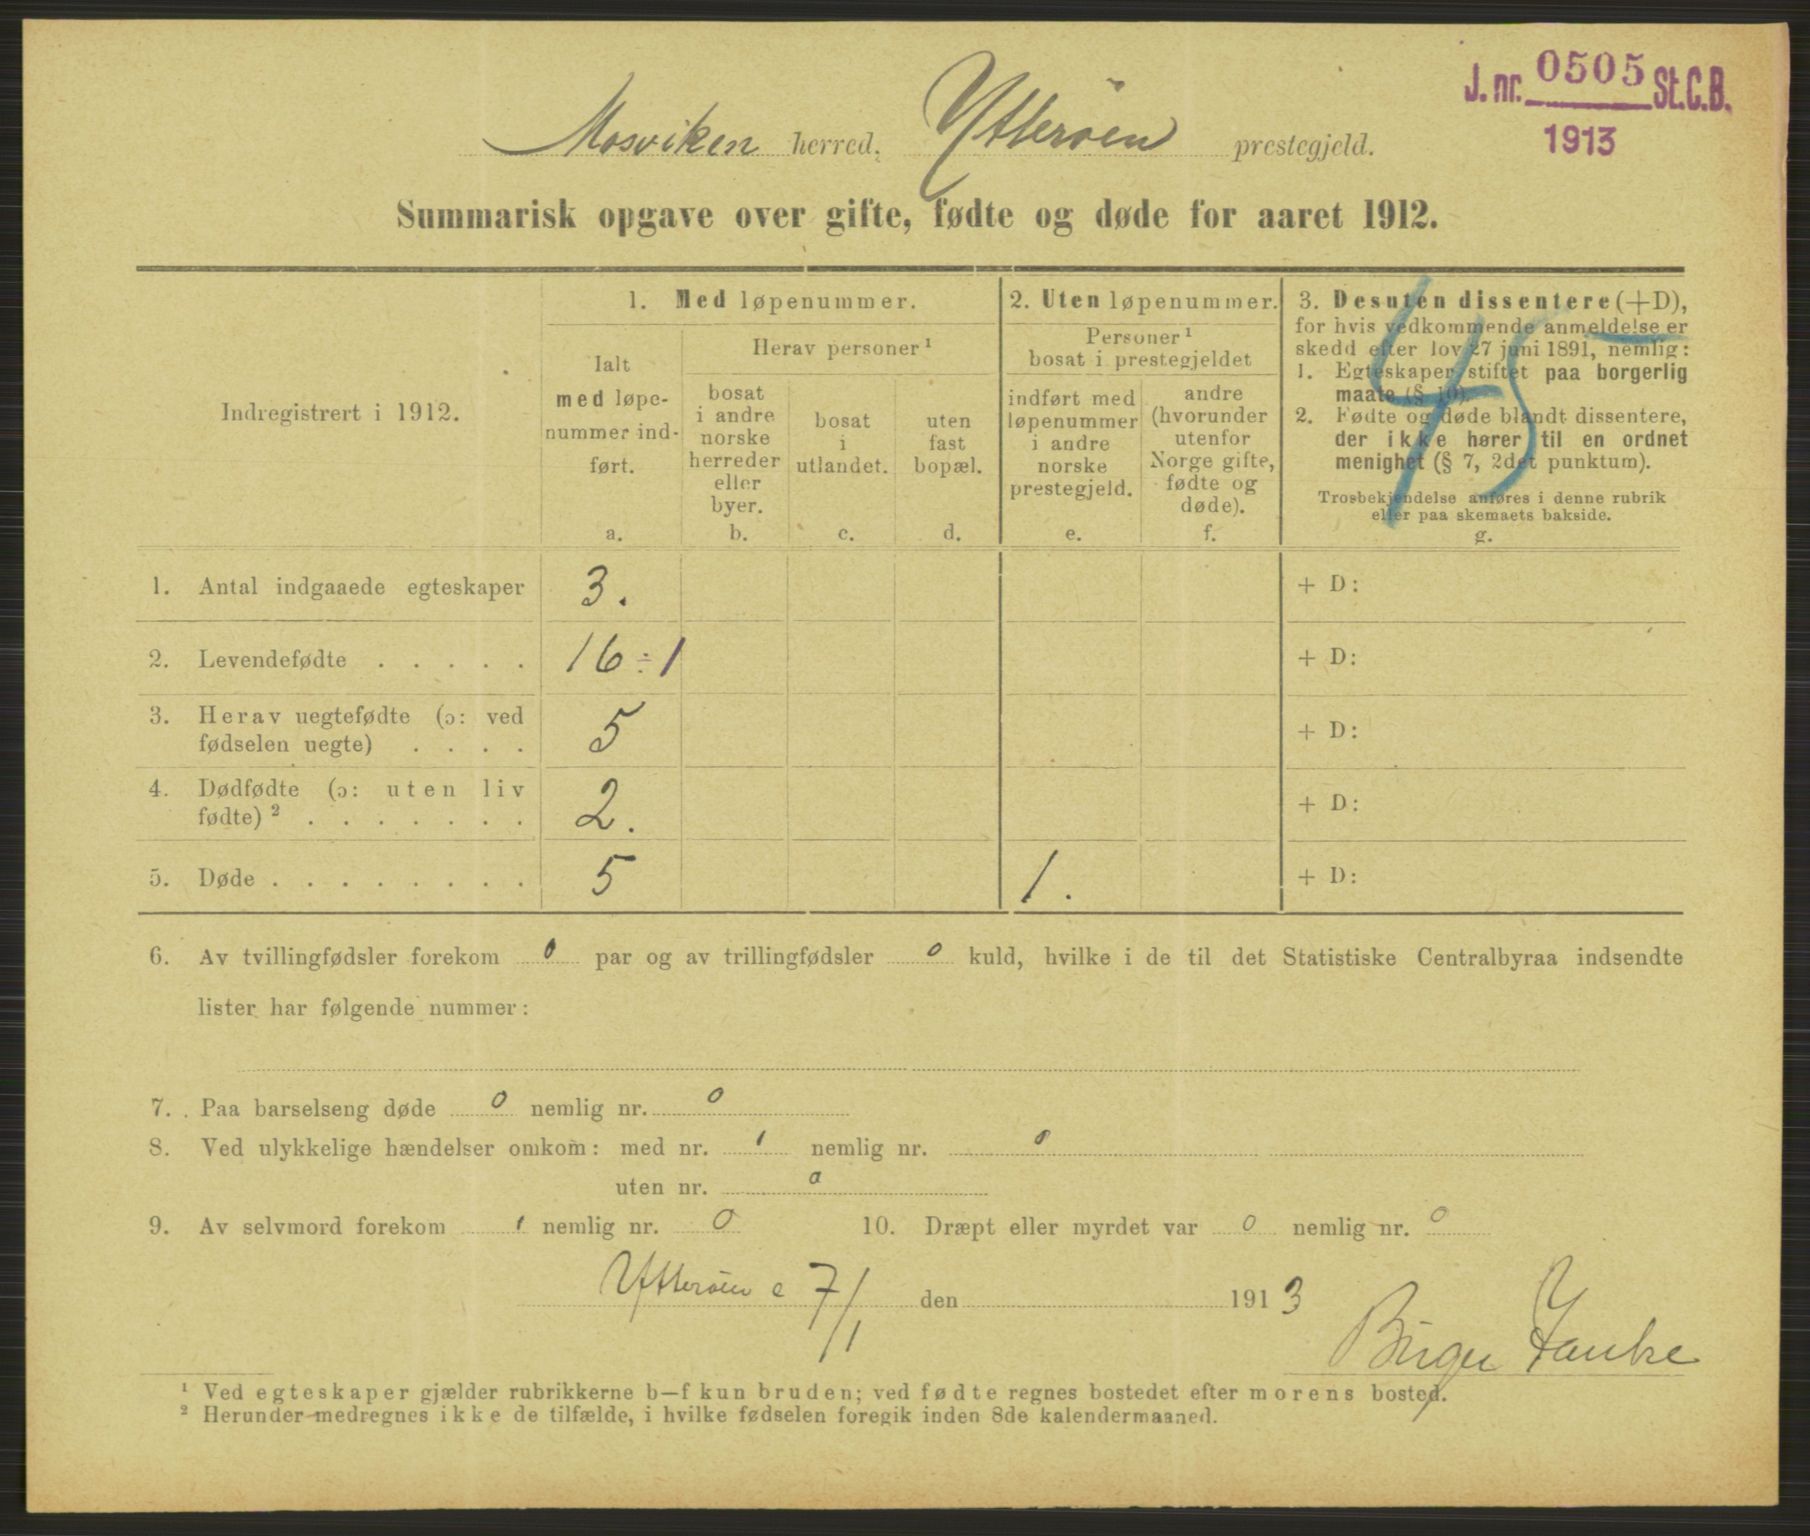 J. nr. 0505 St.C.B.
1913
Mosviken herred, Ytterøen prestegjeld.
Summarisk opgave over gifte, fødte og døde for aaret 1912.
Indregistrert i 1912.
1. Med løpenummer.
Ialt
med løpe-
nummer ind-
ført.
a.
Herav personer ¹
bosat
i andre
norske
herreder
eller
byer.
b.
bosat
i
utlandet.
c.
uten
fast
bopæl.
d.
2. Uten løpenummer.
Personer ¹
bosat i prestegjeldet
indført med
løpenummer
i andre
norske
prestegjeld.
e.
andre
(hvorunder
utenfor
Norge gifte,
fødte og
døde).
f.
3. Desuten dissentere (+D),
for hvis vedkommende anmeldelse er
skedd efter lov 27 juni 1891, nemlig:
1. Egteskaper stiftet paa borgerlig
maate (§ 10).
2. Fødte og døde blandt dissentere,
der ikke hører til en ordnet
menighet (§ 7, 2det punktum).
Trosbekjendelse anføres i denne rubrik
eller paa skemaets bakside.
g.
45
1. Antal indgaaede egteskaper 3. + D:
2. Levendefødte . . . . . 16 ÷ 1 + D:
3. Herav uegtefødte (ɔ: ved
fødselen uegte) . . . . 5 + D:
4. Dødfødte (ɔ: uten liv
fødte) ² . . . . . . . 2. + D:
5. Døde . . . . . . . . 5 1. + D:
6. Av tvillingfødsler forekom 0 par og av trillingfødsler 0 kuld, hvilke i de til det Statistiske Centralbyraa indsendte
lister har følgende nummer:
7. Paa barselseng døde 0 nemlig nr. 0
8. Ved ulykkelige hændelser omkom: med nr. 1 nemlig nr. 0
uten nr. 0
9. Av selvmord forekom 1 nemlig nr. 0 10. Dræpt eller myrdet var 0 nemlig nr. 0
Ytterøen 7/1 den 1913
Birger
¹ Ved egteskaper gjælder rubrikkerne b—f kun bruden; ved fødte regnes bostedet efter morens bosted.
² Herunder medregnes ikke de tilfælde, i hvilke fødselen foregik inden 8de kalendermaaned.